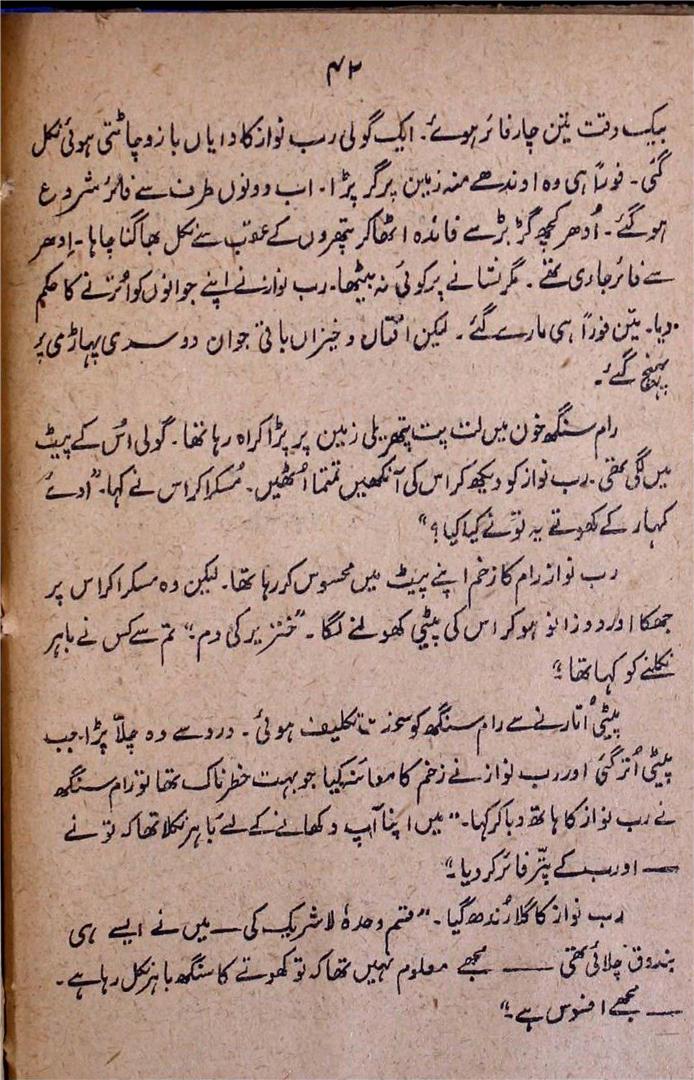 ۴۲
بیک وقت تین چار فائر ہوئے۔ ایک گولی رب نواز کا دایاں بازو چاٹتی ہوئی نکل
گئی۔ فوراً ہی وہ اوندھے منہ زمین پر گر پڑا۔ اب دونوں طرف سے فائر شروع
ہو گئے۔ اُدھر کچھ گڑبڑ سے فائدہ اٹھا کر پتھروں کے عقب سے نکل بھاگنا چاہا۔ اِدھر
سے فائر جاری تھے۔ مگر نشانے پر کوئی نہ بیٹھا۔ رب نواز نے اپنے جوانوں کو اُترنے کا حکم
دیا۔ تین فوراً ہی مارے گئے۔ لیکن افتاں و خیزاں باقی جوان دوسری پہاڑی پر
پہنچ گئے۔
رام سنگھ خون میں لت پت پتھریلی زمین پر پڑا کراہ رہا تھا۔ گولی اُس کے پیٹ
میں لگی تھی۔ رب نواز کو دیکھ کر اس کی آنکھیں تمتما اُٹھیں۔ مُسکرا کر اس نے کہا۔ "اوئے
کمہار کے کھوتے یہ تُو نے کیا کیا؟"
رب نواز رام کا زخم اپنے پیٹ میں محسوس کر رہا تھا۔ لیکن وہ مسکرا کر اس پر
جھکا اور دو زانو ہو کر اس کی پیٹی کھولنے لگا۔ "خنزیر کی دم" تم سے کس نے باہر
نکلنے کو کہا تھا؟"
پیٹی اُتارنے سے رام سنگھ کو سخت تکلیف ہوئی۔ درد سے وہ چلّا پڑا۔ جب
پیٹی اُتر گئی اور رب نواز نے زخم کا معائنہ کیا جو بہت خطرناک تھا تو رام سنگھ
نے رب نواز کا ہاتھ دبا کر کہا۔ "میں اپنا آپ دکھانے کے لئے باہر نکلا تھا کہ تُو نے
— اوئے رب کے پتّر فائر کر دیا۔"
رب نواز کا گلا رُندھ گیا۔ "قسم وحدہٗ لاشریک کی — میں نے ایسے ہی
بندوق چلائی تھی — مجھے معلوم نہیں تھا کہ تُو کھوتے کا سنگھ باہر نکل رہا ہے۔
— مجھے افسوس ہے۔"